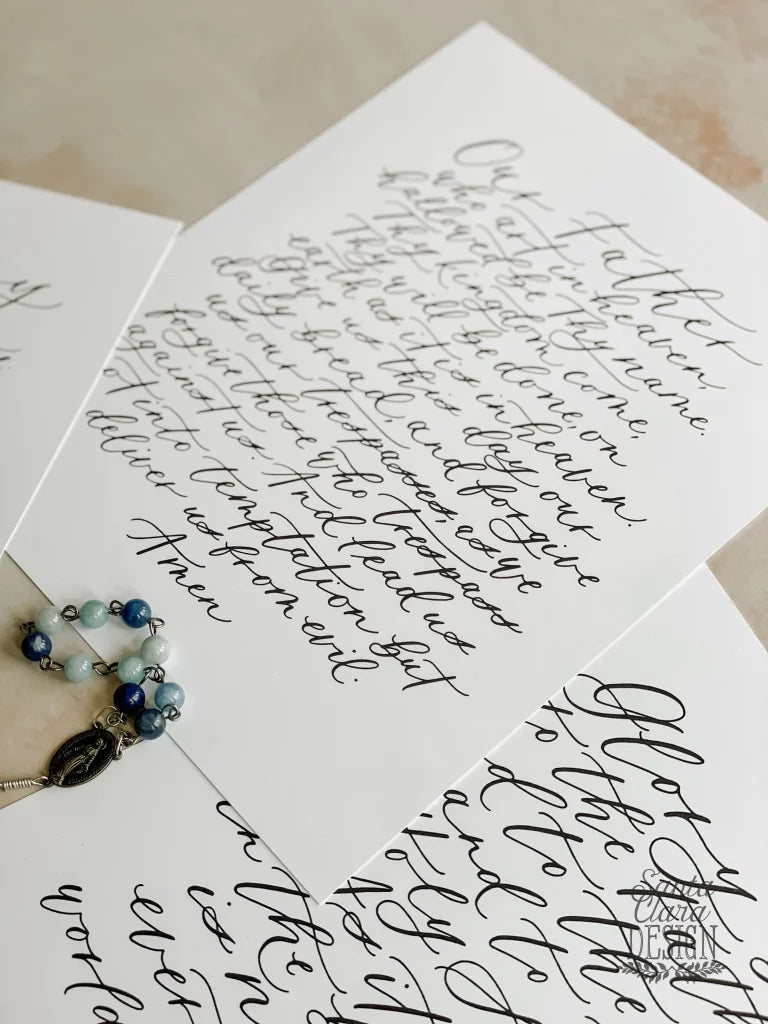 Our Father
who art in heaven
hallowed be Thy name.
Thy kingdom come,
Thy will be done, on
earth as it is in heaven.
Give us this day our
daily bread, and forgive
us our trespasses, as we
forgive those who trespass
against us. And lead us
not into temptation but
deliver us from evil.
Amen
Glory
to the
d to the
and to
Holy
As it
in the
is n
ever
world
Santa
Clara
DESIGN